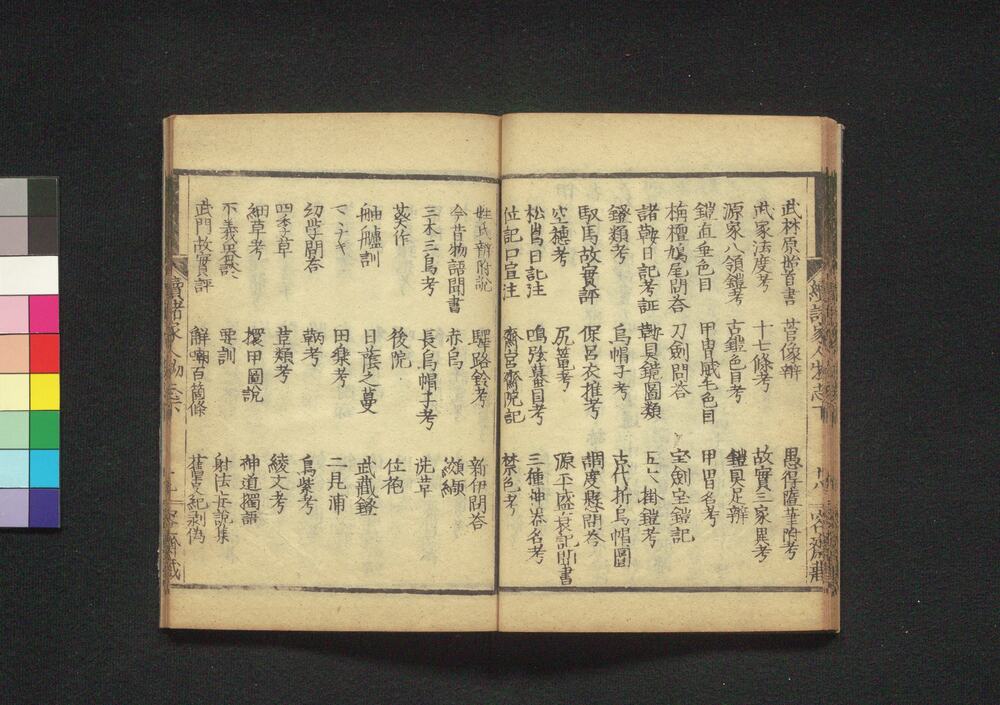 武林原始首書 莒像辯 愚得隨筆附考
武家法度考 十七條考 故實三家異考
源家八領鎧考 古鎧色目考 鎧具足辯
鎧直垂色目 甲冑貮毛色目 甲冑名考
栴檀鳩尾問答 刀劍問答 宝劍宝鎧記
諸鞍日記考証 鞍具鏡圖類 五六掛鎧考
鐙類考 烏帽子考 古代折烏帽圖
馭馬故實評 保呂衣推考 調度懸問答
空穗考 尻篭考 源平盛衰記聞書
松島日記注 鳴弦蟇目考 三種神器名考
位記口宣注 齋宮齋院記 禁色考
姓氏辯附說 驛路鈴考 新伊問答
今昔物語聞書 赤烏 纐纈
三木三鳥考 長烏帽子考 洗草
葵作 後院 位袍
舳艫訓 日蔭之蔓 武藏鐙
田樂考 二見浦
幼學問答 鞆考 烏紫考
四季草 莒類考 綾文考
細草考 擐甲圖說 神道獨語
不義異聚 要訓 射法要說集
武門故實評 辭嘲百箇條 舊事紀剥偽